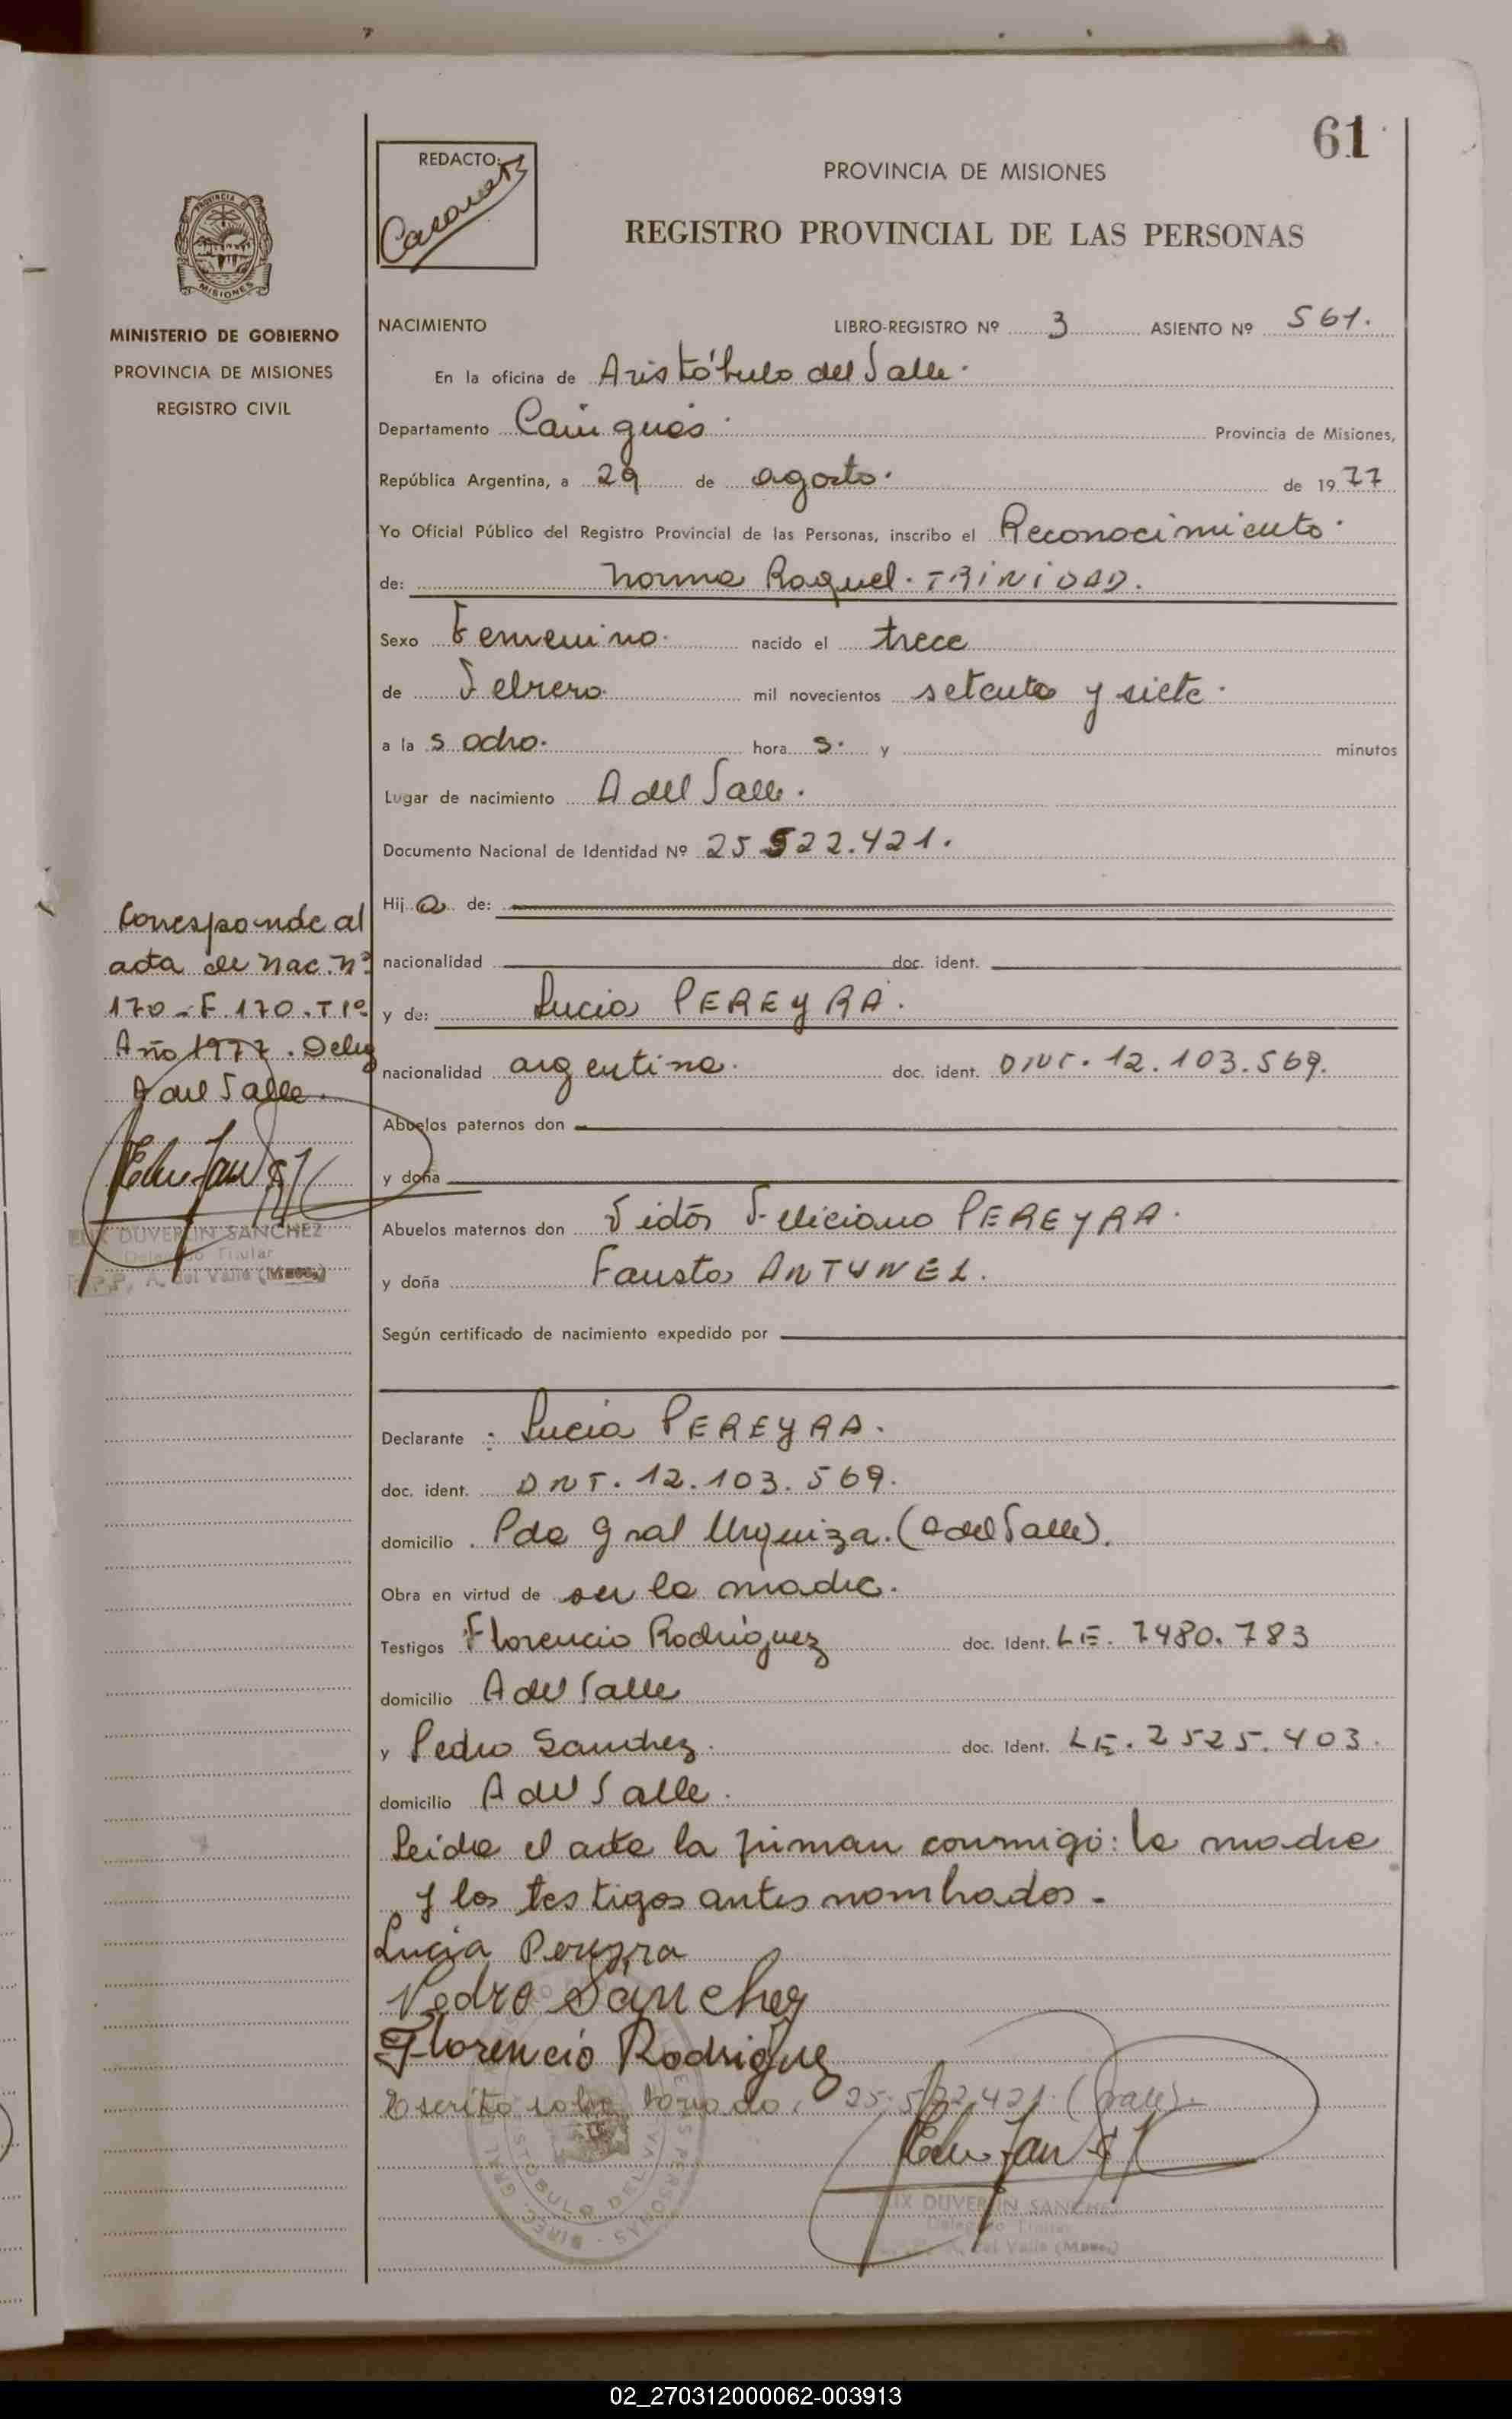 61
REDACTO:
PROVINCIA DE MISIONES
REGISTRO PROVINCIAL DE LAS PERSONAS
PROVINCIA DE
MISIONES
MINISTERIO DE GOBIERNO
PROVINCIA DE MISIONES
REGISTRO CIVIL
NACIMIENTO LIBRO-REGISTRO Nº 3 ASIENTO Nº 561.
En la oficina de Aristóbulo del Valle.
Departamento Cainguás. Provincia de Misiones,
República Argentina, a 29 de agosto. de 1977
Yo Oficial Público del Registro Provincial de las Personas, inscribo el Reconocimiento.
de: Norma Raquel. TRINIDAD.
Sexo Femenino. nacido el trece
de Febrero. mil novecientos setenta y siete.
a la s ocho. hora s. y minutos
Lugar de nacimiento A del Valle.
Documento Nacional de Identidad Nº 25.522.421.
Hij a de:
nacionalidad doc. ident.
y de: Lucia PEREYRA.
nacionalidad argentina. doc. ident. DNI. 12.103.569.
Abuelos paternos don
y doña
Abuelos maternos don Feliciano PEREYRA.
y doña Fausta ANTUNEZ.
Según certificado de nacimiento expedido por
Declarante : Lucia PEREYRA.
doc. ident. DNI. 12.103.569.
domicilio . Pdo Gral Urquiza. (A del Valle).
Obra en virtud de ser la madre.
Testigos Florencio Rodriguez doc. Ident. LE. 7480.783
domicilio A del Valle
y Pedro Sanchez. doc. Ident. LE. 2525.403.
domicilio A del Valle.
Leida el acta la firman conmigo: la madre
y los testigos antes nombrados.-
Lucia Pereyra
Pedro Sanchez
Florencio Rodriguez
Escrito sobre borrado: 25.522.421. (vale).-
DUVERLIN SANCHEZ
Delegado Titular
A. del Valle (Mnes.)
Corresponde al
acta de Nac. Nº
170 - F. 170. Tº 1º
Año 1977. Deleg
A del Valle.
DUVERLIN SANCHEZ
Delegado Titular
R.P.P. A. del Valle (Mnes.)
02_270312000062-003913